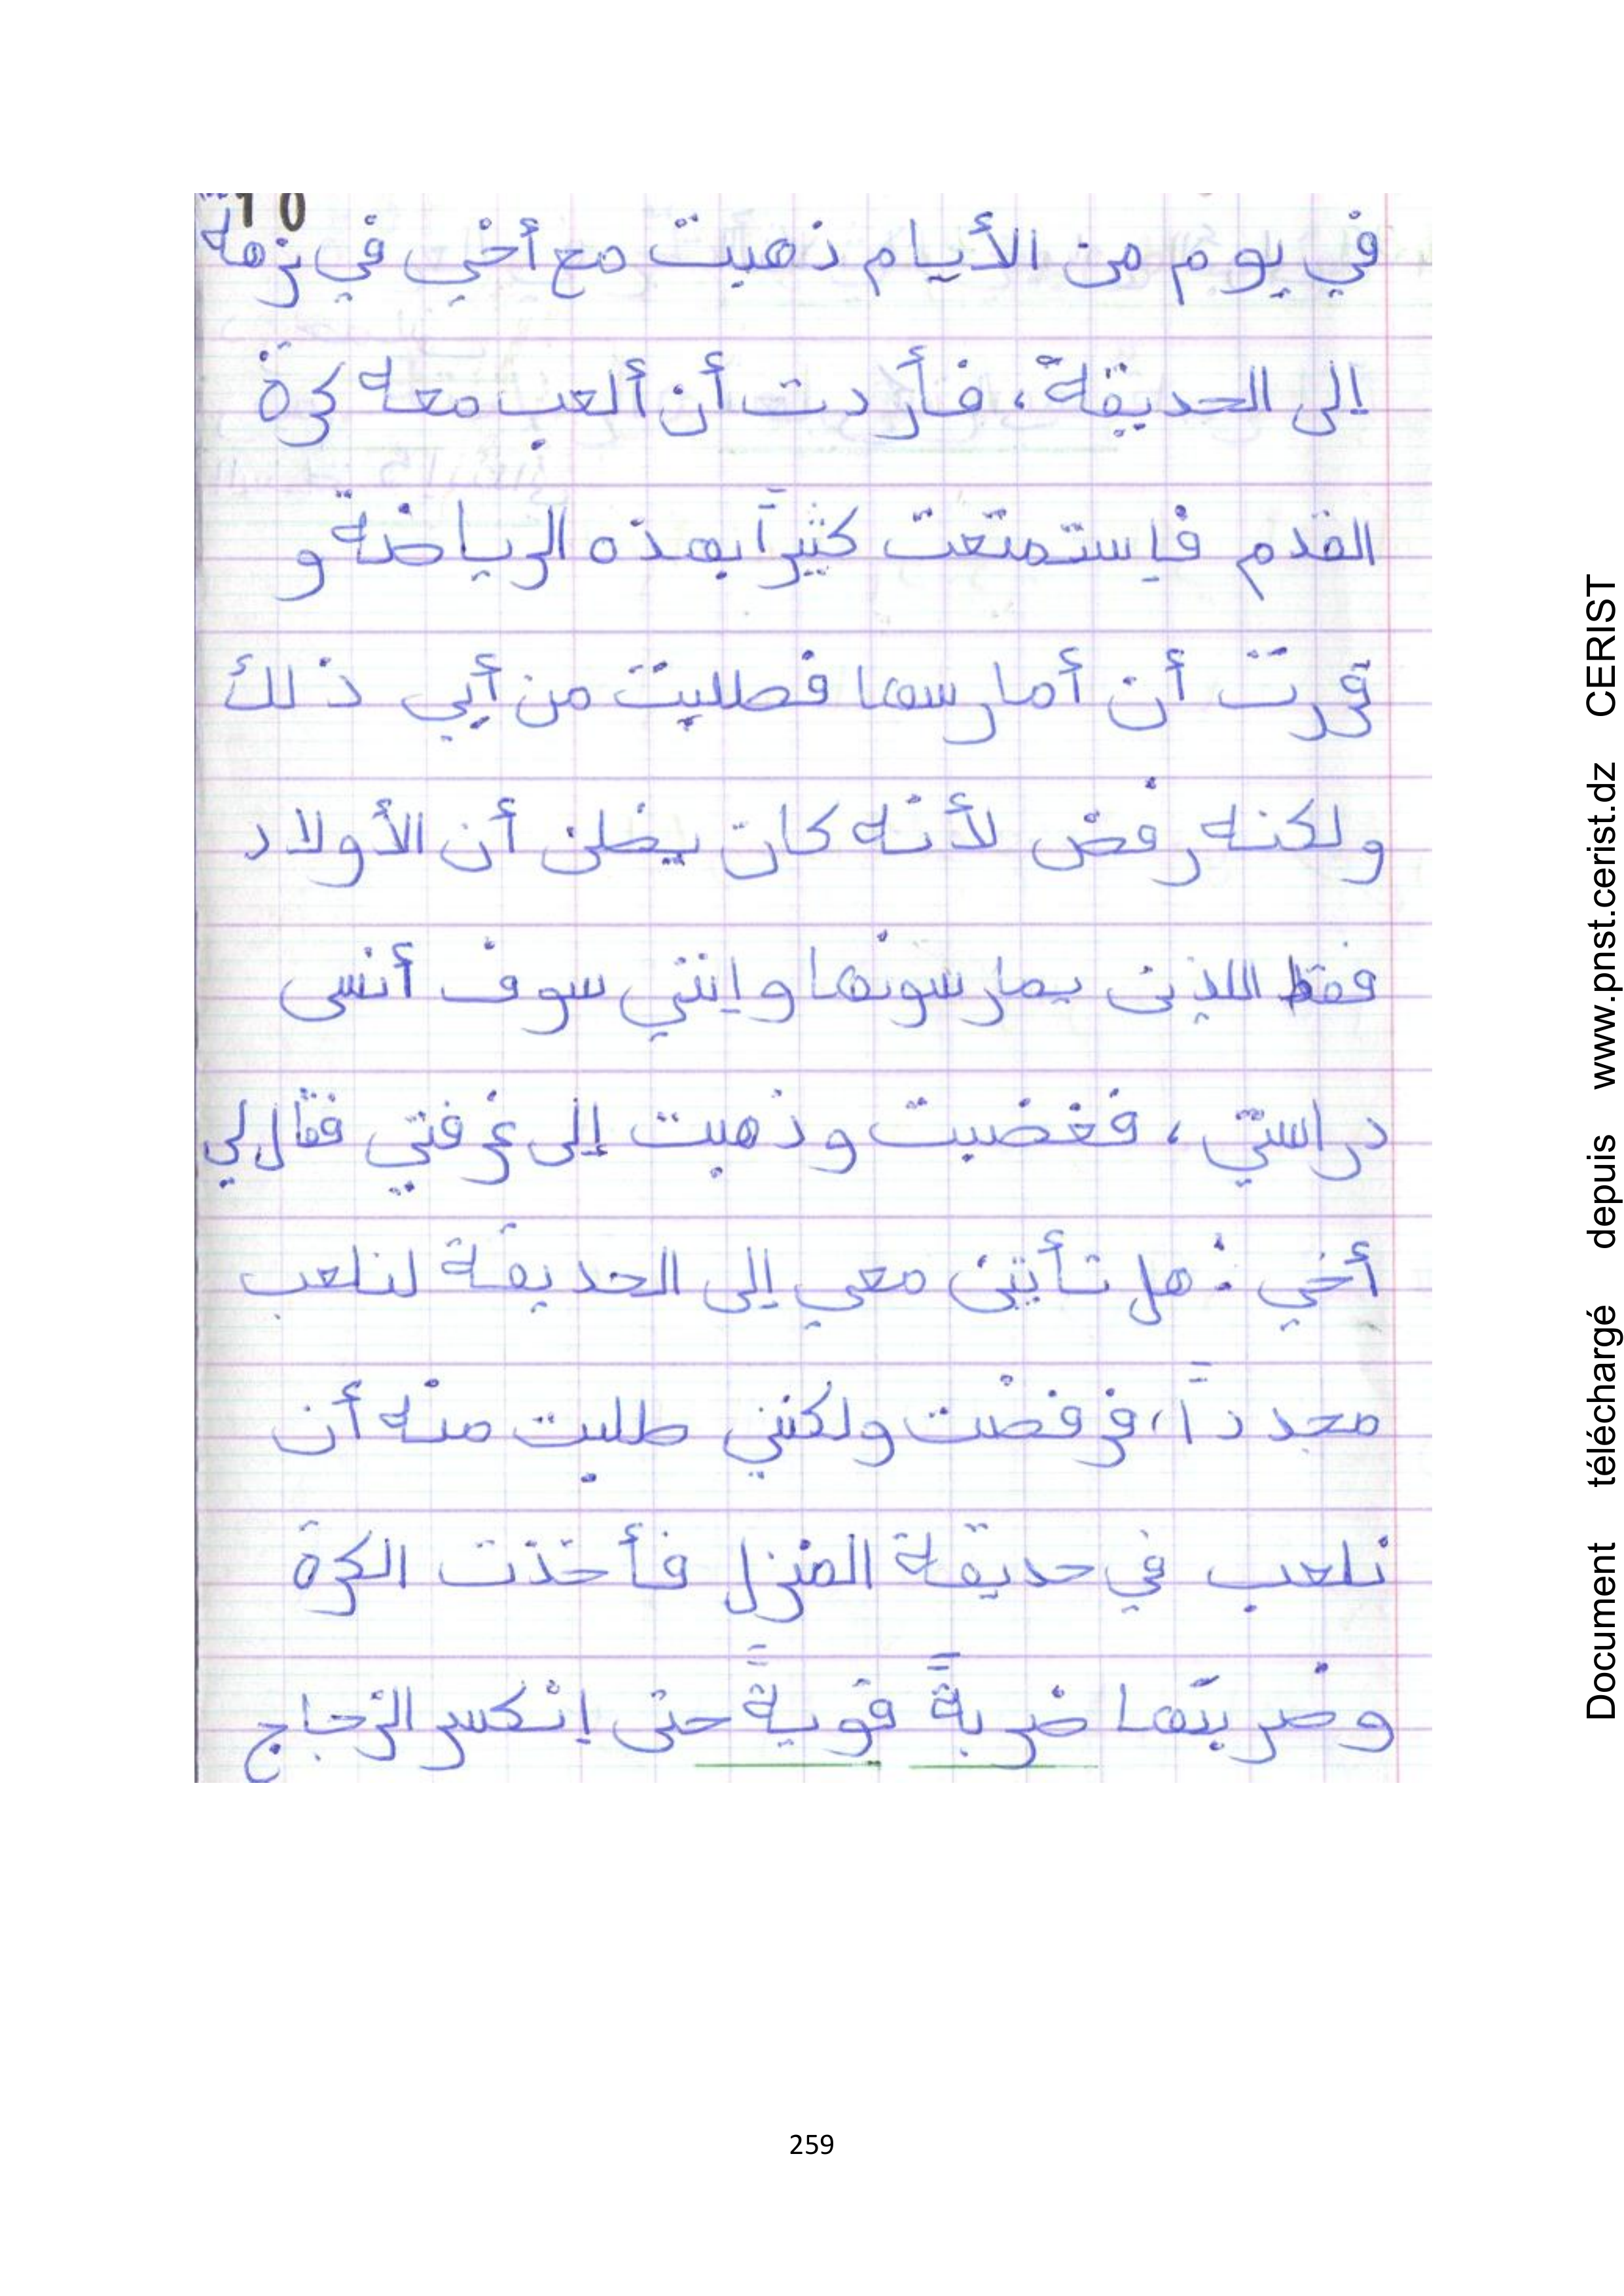 10
في يوم من الأيام ذهبت مع أخي في نزهة
إلى الحديقة، فأردت أن ألعب معه كرة
القدم فإستمتعت كثيراً بهذه الرياضة و
قررت أن أمارسها فطلبت من أبي ذلك
ولكنه رفض لأنه كان يضلن أن الأولاد
فقط اللذين يمارسونها وإنني سوف أنسى
دراستي، فغضبت وذهبت إلى غرفتي فقال لي
أخي : هل تأتين معي إلى الحديقة لنلعب
مجدداً، فرفضت ولكنني طلبت منه أن
نلعب في حديقة المنزل فأخذت الكرة
وضربتها ضربةً قويةً حتى إنكسر الزجاج
259
Document téléchargé depuis www.pnst.cerist.dz CERIST